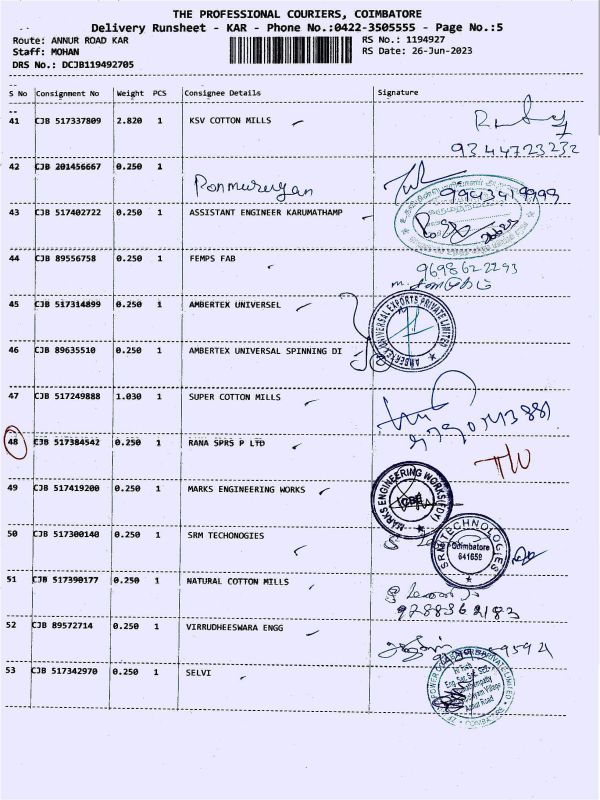 THE PROFESSIONAL COURIERS, COIMBATORE
Delivery Runsheet - KAR - Phone No.:0422-3505555 - Page No.:5
Route: ANNUR ROAD KAR RS No.: 1194927
Staff: MOHAN RS Date: 26-Jun-2023
DRS No.: DCJB119492705
S No Consignment No Weight PCS Consignee Details Signature
41 CJB 517337809 2.820 1 KSV COTTON MILLS
9344723232
42 CJB 201456667 0.250 1
Ponmurugan 9943419999
43 CJB 517402722 0.250 1 ASSISTANT ENGINEER KARUMATHAMP
44 CJB 89556758 0.250 1 FEMPS FAB
9698622293
45 CJB 517314899 0.250 1 AMBERTEX UNIVERSEL
AMBERTEX UNIVERSAL EXPORTS PRIVATE LIMITED
46 CJB 89635510 0.250 1 AMBERTEX UNIVERSAL SPINNING DI
47 CJB 517249888 1.030 1 SUPER COTTON MILLS
48 CJB 517384542 0.250 1 RANA SPRS P LTD
49 CJB 517419200 0.250 1 MARKS ENGINEERING WORKS
MARKS ENGINEERING WORKS(FDY)
CBE
50 CJB 517300140 0.250 1 SRM TECHONOGIES
SRM TECHNOLOGIES
Coimbatore
641659
51 CJB 517390177 0.250 1 NATURAL COTTON MILLS
9288362183
52 CJB 89572714 0.250 1 VIRRUDHEESWARA ENGG
53 CJB 517342970 0.250 1 SELVI